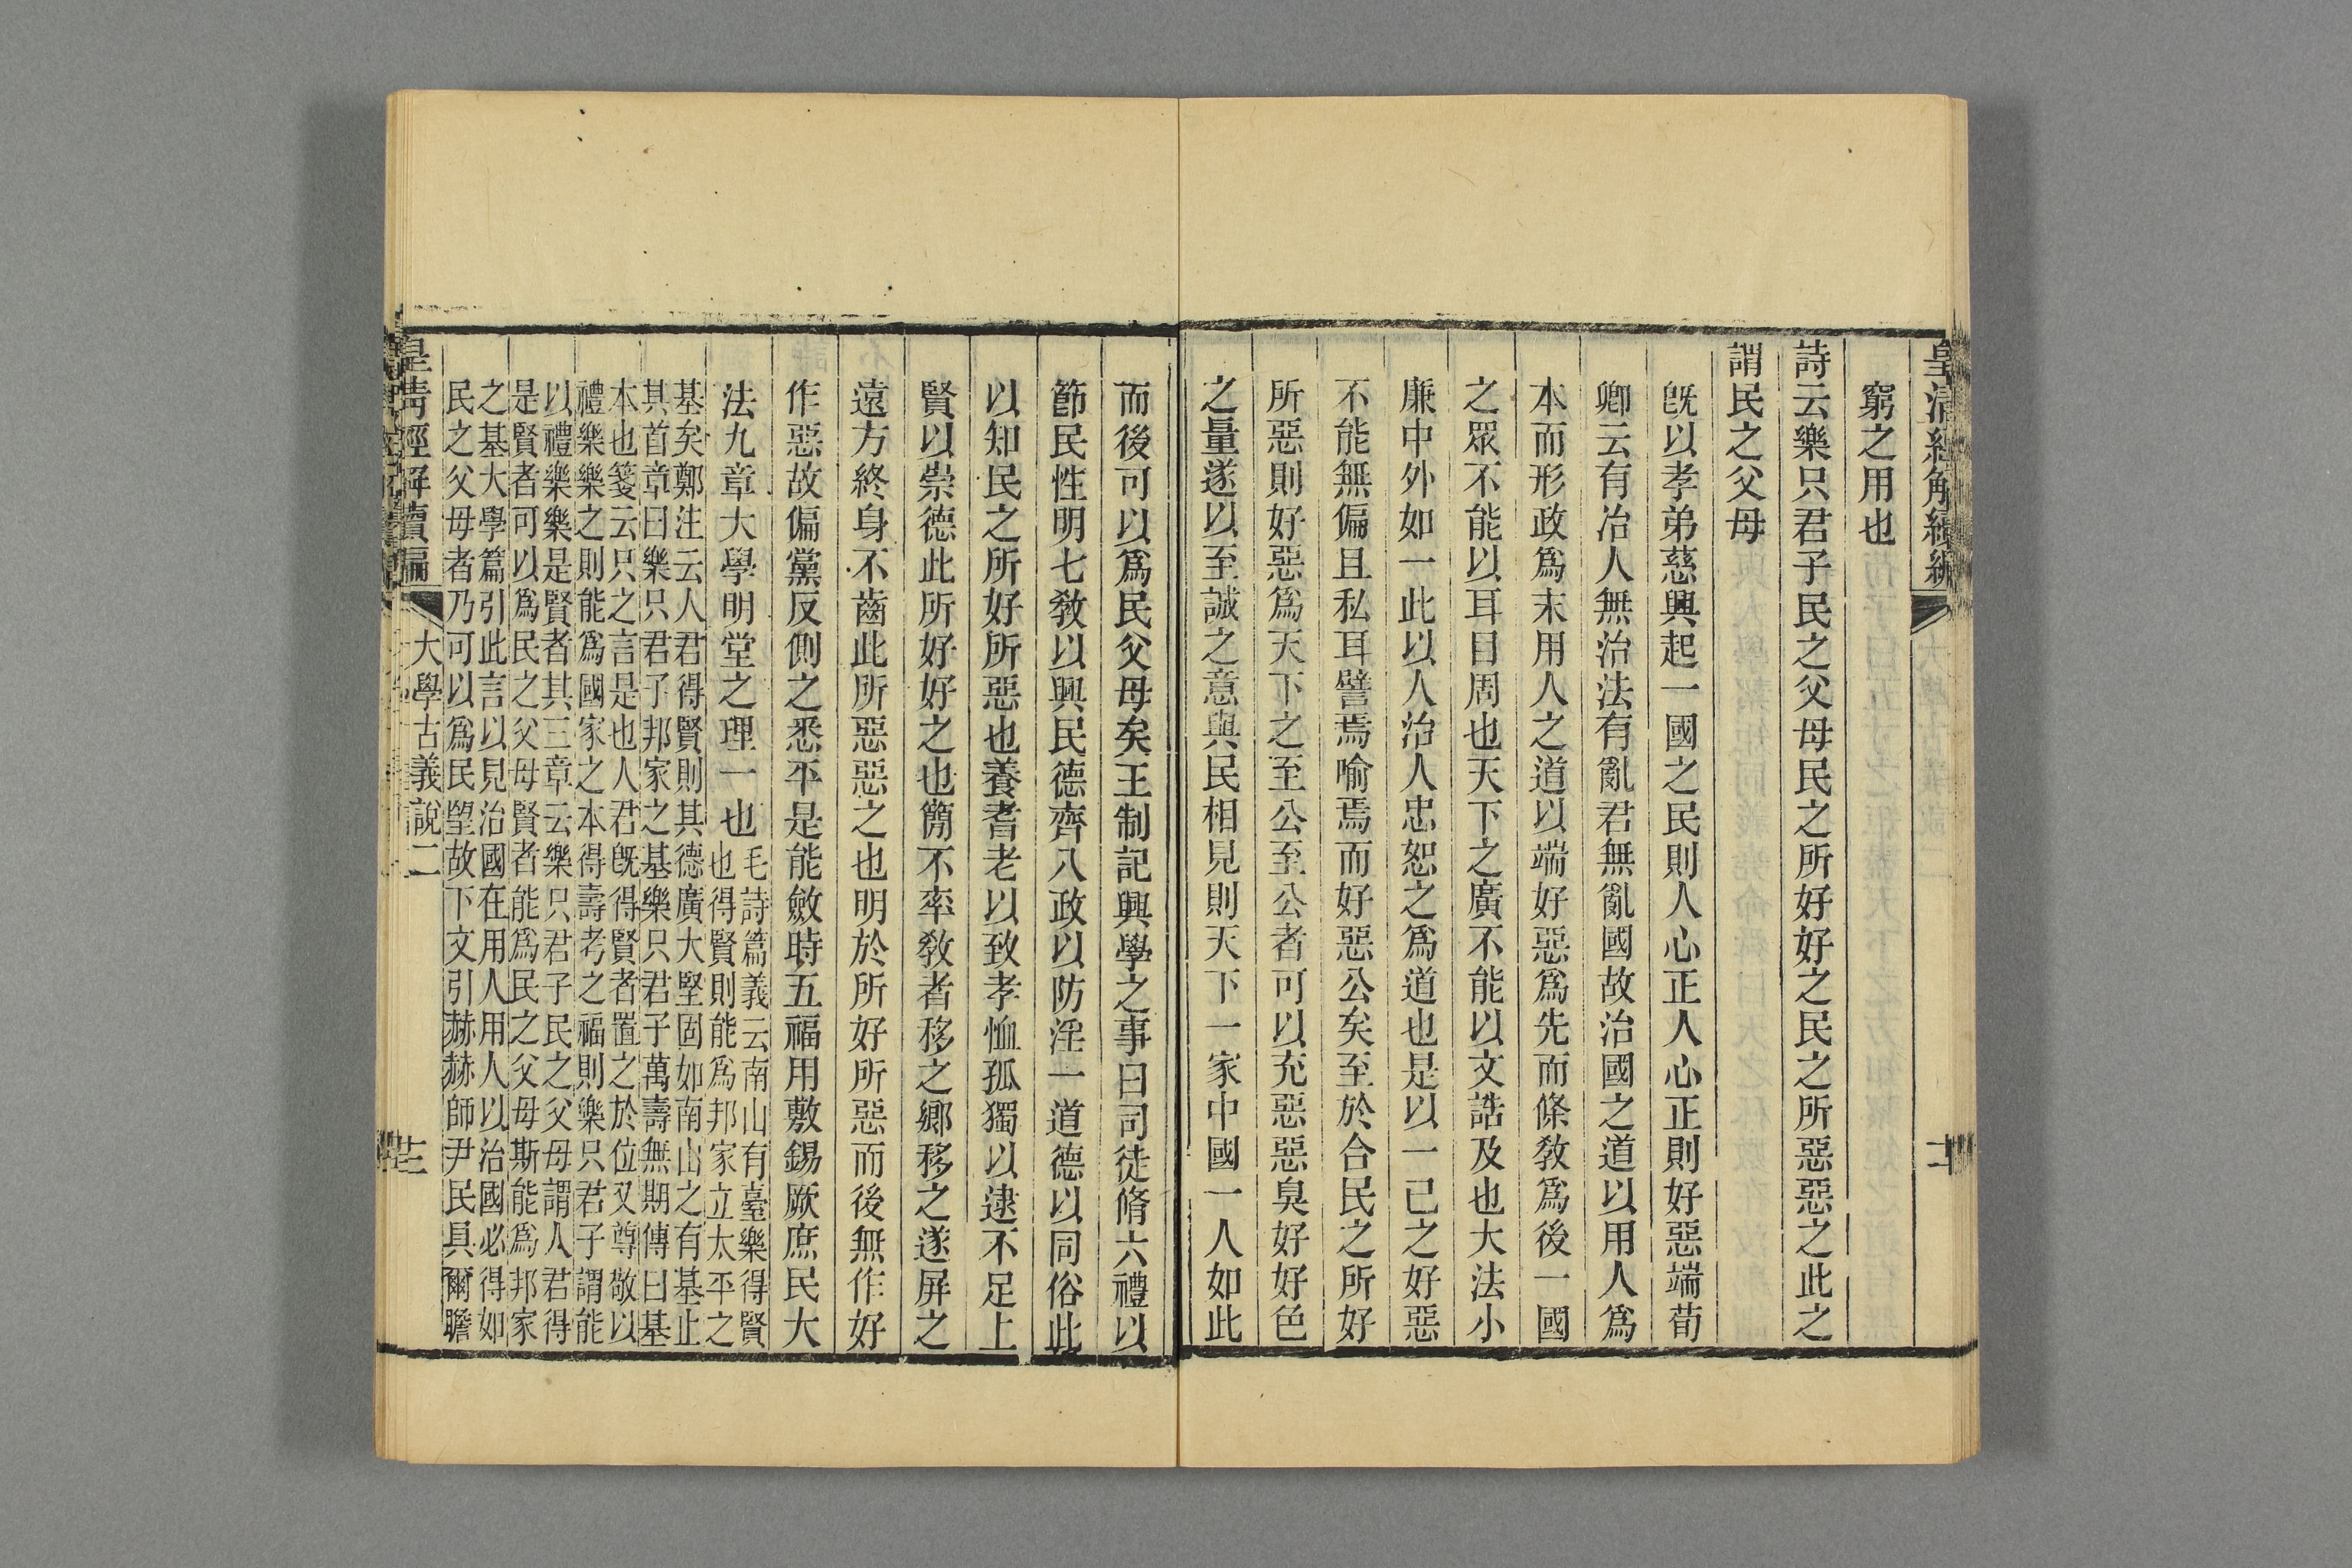 皇清經解續編
十二
窮之用也
詩云樂只君子民之父母民之所好好之民之所惡惡之此之
謂民之父母
旣以孝弟慈興起一國之民則人心正人心正則好惡端荀
卿云有治人無治法有亂君無亂國故治國之道以用人爲
本而形政爲末用人之道以端好惡爲先而條敎爲後一國
之眾不能以耳目周也天下之廣不能以文誥及也大法小
廉中外如一此以人治人忠恕之爲道也是以一己之好惡
不能無偏且私耳譬焉喻焉而好惡公矣至於合民之所好
所惡則好惡爲天下之至公至公者可以充惡惡臭好好色
之量遂以至誠之意與民相見則天下一家中國一人如此
而後可以爲民父母矣王制記興學之事曰司徒脩六禮以
節民性明七敎以興民德齊八政以防淫一道德以同俗此
以知民之所好所惡也養耆老以致孝恤孤獨以逮不足上
賢以崇德此所好好之也簡不率敎者移之鄉移之遂屏之
遠方終身不齒此所惡惡之也明於所好所惡而後無作好
作惡故偏黨反側之悉平是能斂時五福用敷錫厥庶民大
法九章大學明堂之理一也
毛詩篇義云南山有臺樂得賢
也得賢則能爲邦家立太平之
基矣鄭注云人君得賢則其德廣大堅固如南山之有基止
其首章曰樂只君子邦家之基樂只君子萬壽無期傳曰基
本也箋云只之言是也人君旣得賢者置之於位又尊敬以
禮樂樂之則能爲國家之本得壽考之福則樂只君子謂能
以禮樂樂是賢者其三章云樂只君子民之父母謂人君得
是賢者可以爲民之父母賢者能爲民之父母斯能爲邦家
之基大學篇引此言以見治國在用人用人以治國必得如
民之父母者乃可以爲民望故下文引赫赫師尹民具爾瞻
皇清經解續編
大學古義說二
十三